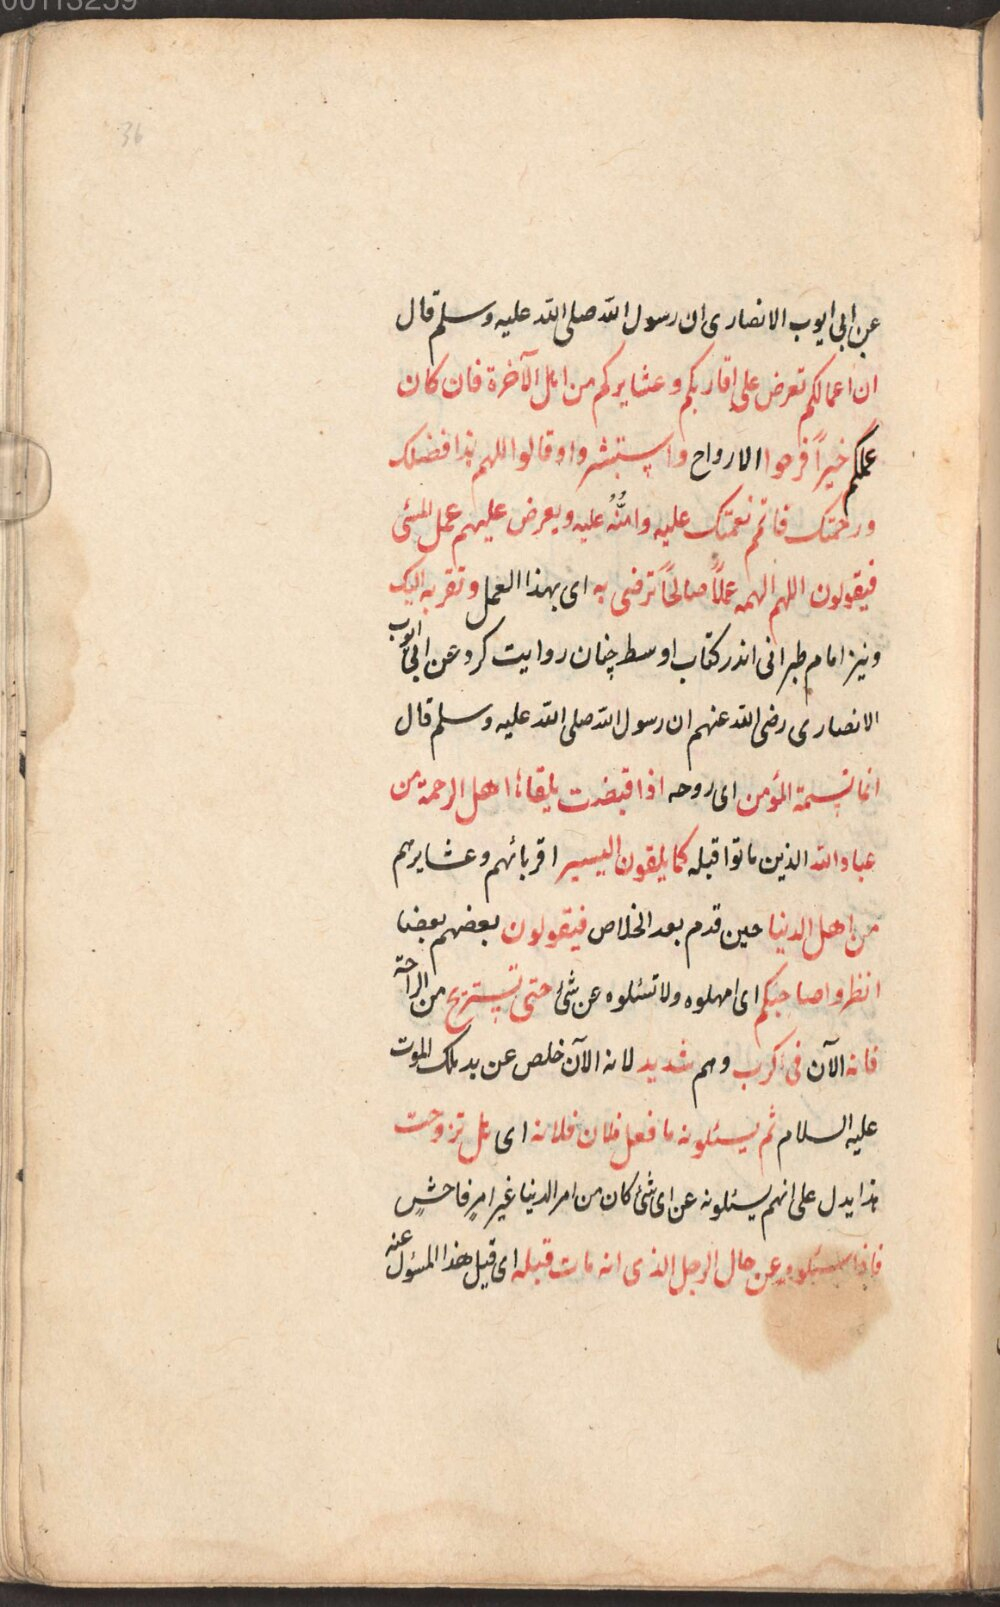 00113259
36
عن ابی ایوب الانصاری ان رسول الله صلی الله علیه وسلم قال
ان اعمالکم تعرض علی اقاربکم و عشایرکم من اهل الآخرة فان کان
عملکم خیراً فرحوا الارواح واستبشروا وقالوا اللهم هذا فضلک
ورحمتک فاتمم نعمتک علیه وامته علیه ویعرض علیهم عمل المسئ
فیقولون اللهم الهمه عملاً صالحاً ترضی به ای بهذا العمل وتقربه الیک
ونیز امام طبرانی اندر کتاب اوسط چنان روایت کرد عن ابی ایوب
الانصاری رضی الله عنهم ان رسول الله صلی الله علیه وسلم قال
انما نسمة المؤمن ای روحه اذا قبضت یلقاها اهل الرحمة من
عباد الله الذین ماتوا قبله کما یلقون الیسیر اقربائهم وعشایرهم
من اهل الدنیا حین قدم بعد الخلاص فیقولون بعضهم بعضا
انظروا صاحبکم ای امهلوه ولا تسئلوه عن شئ حتی یستریح من الراحة
فانه الآن فی کرب وهم شدید لانه الآن خلص عن ید ملک الموت
علیه السلام ثم یسئلونه ما فعل فلان فلانه ای هل تزوجت
هذا یدل علی انهم یسئلونه عن ای شئ کان من امر الدنیا غیر امرٍ فاحشٍ
فاذا عن حال الرجل الذی انه مات قبله ای قبل هذا المسؤل عنه